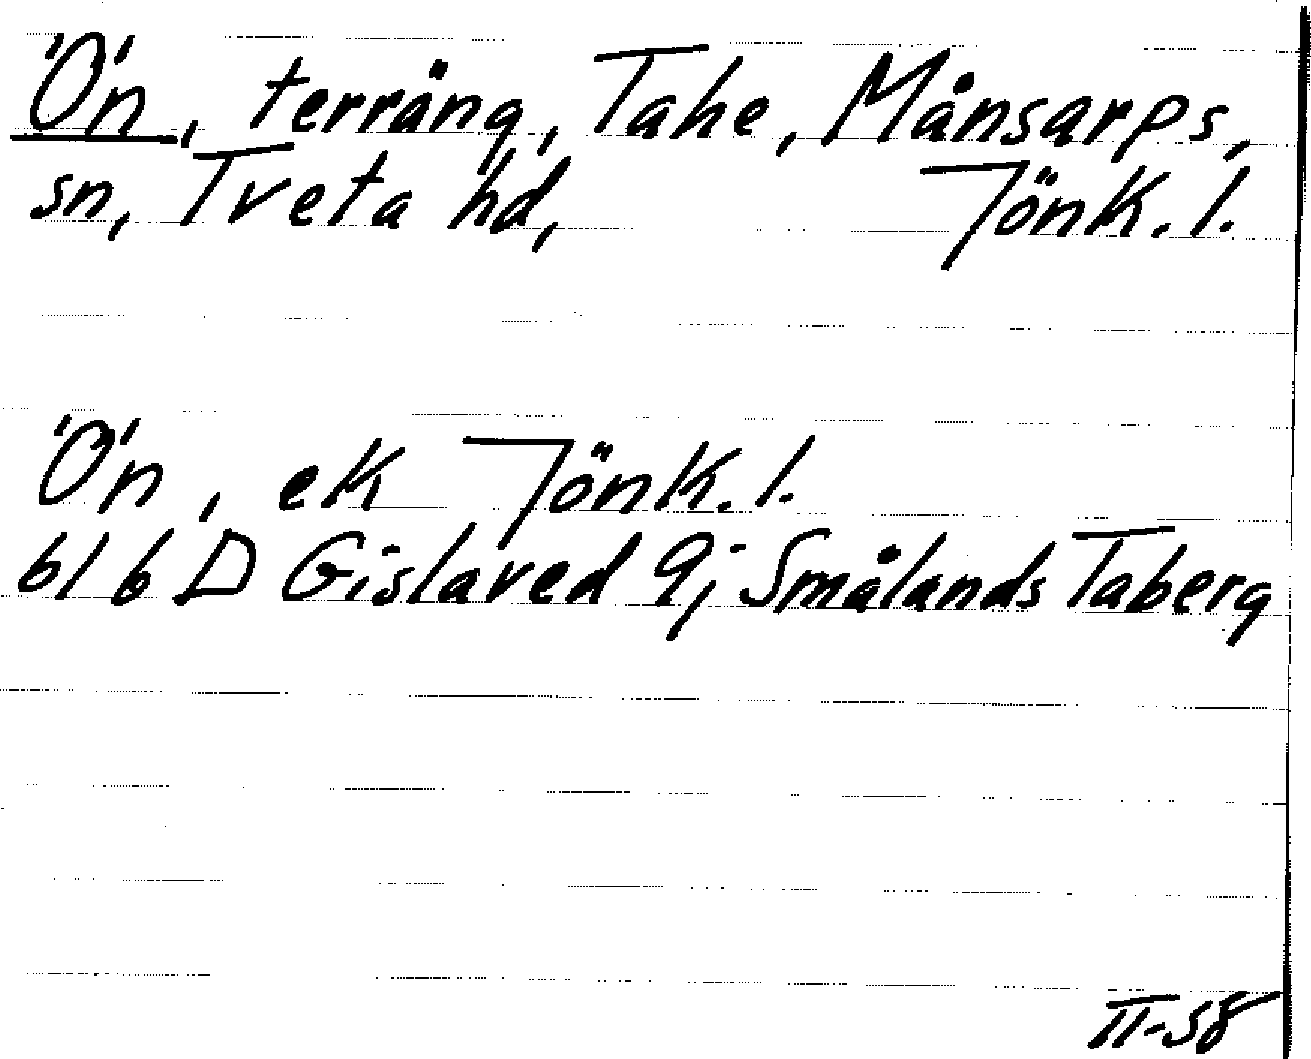 Ön, terräng, Tahe, Månsarps,
sn, Tveta hd, Jönk. l.
Ön, ek Jönk. l.
616 D Gislaved 9j Smålands Taberg
II-58